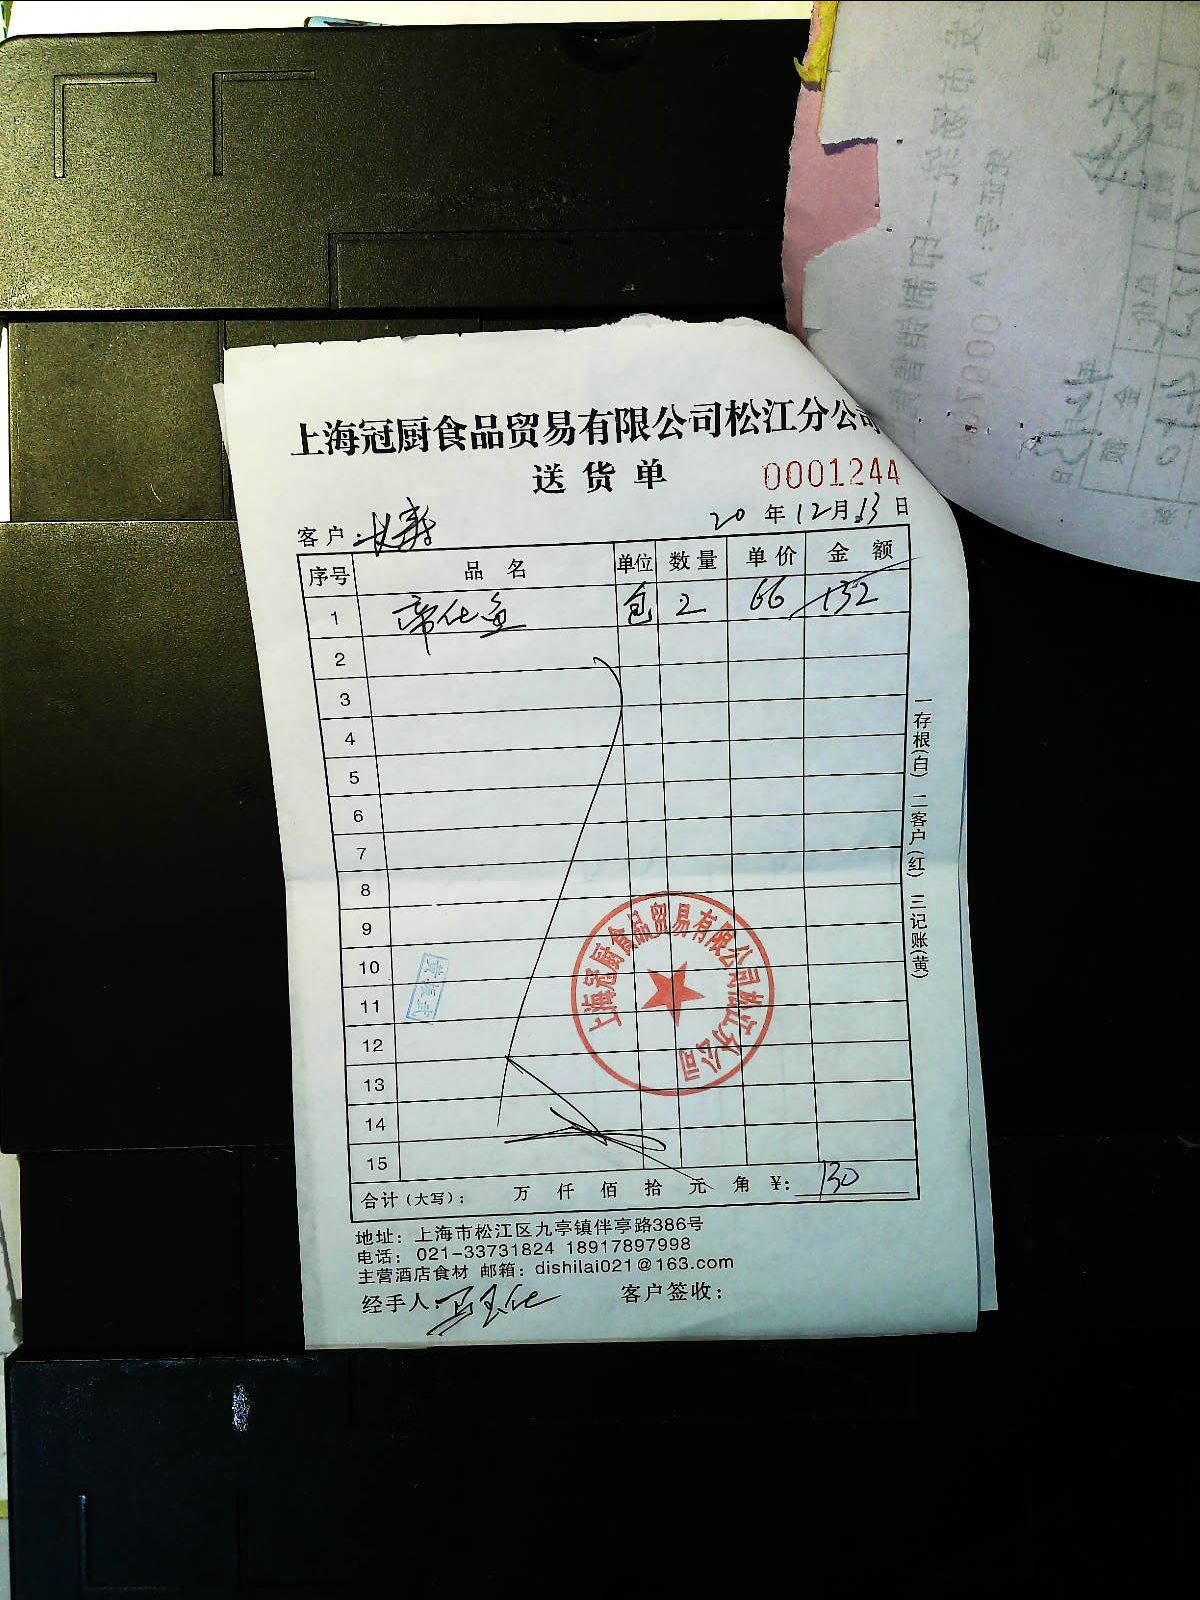 上海冠厨食品贸易有限公司松江分公司
送货单 0001244
客户: 20 年 12 月 13 日
序号 品名 单位 数量 单价 金额
1 包 2 66 132
2
3
4
5
6
7
8
9
10
11
12
13
14
15
合计(大写): 万 仟 佰 拾 元 角 ¥: 130
地址: 上海市松江区九亭镇伴亭路386号
电话: 021-33731824 18917897998
主营酒店食材 邮箱: dishilai021@163.com
经手人: 客户签收:
一存根(白) 二客户(红) 三记账(黄)
上海冠厨食品贸易有限公司松江分公司